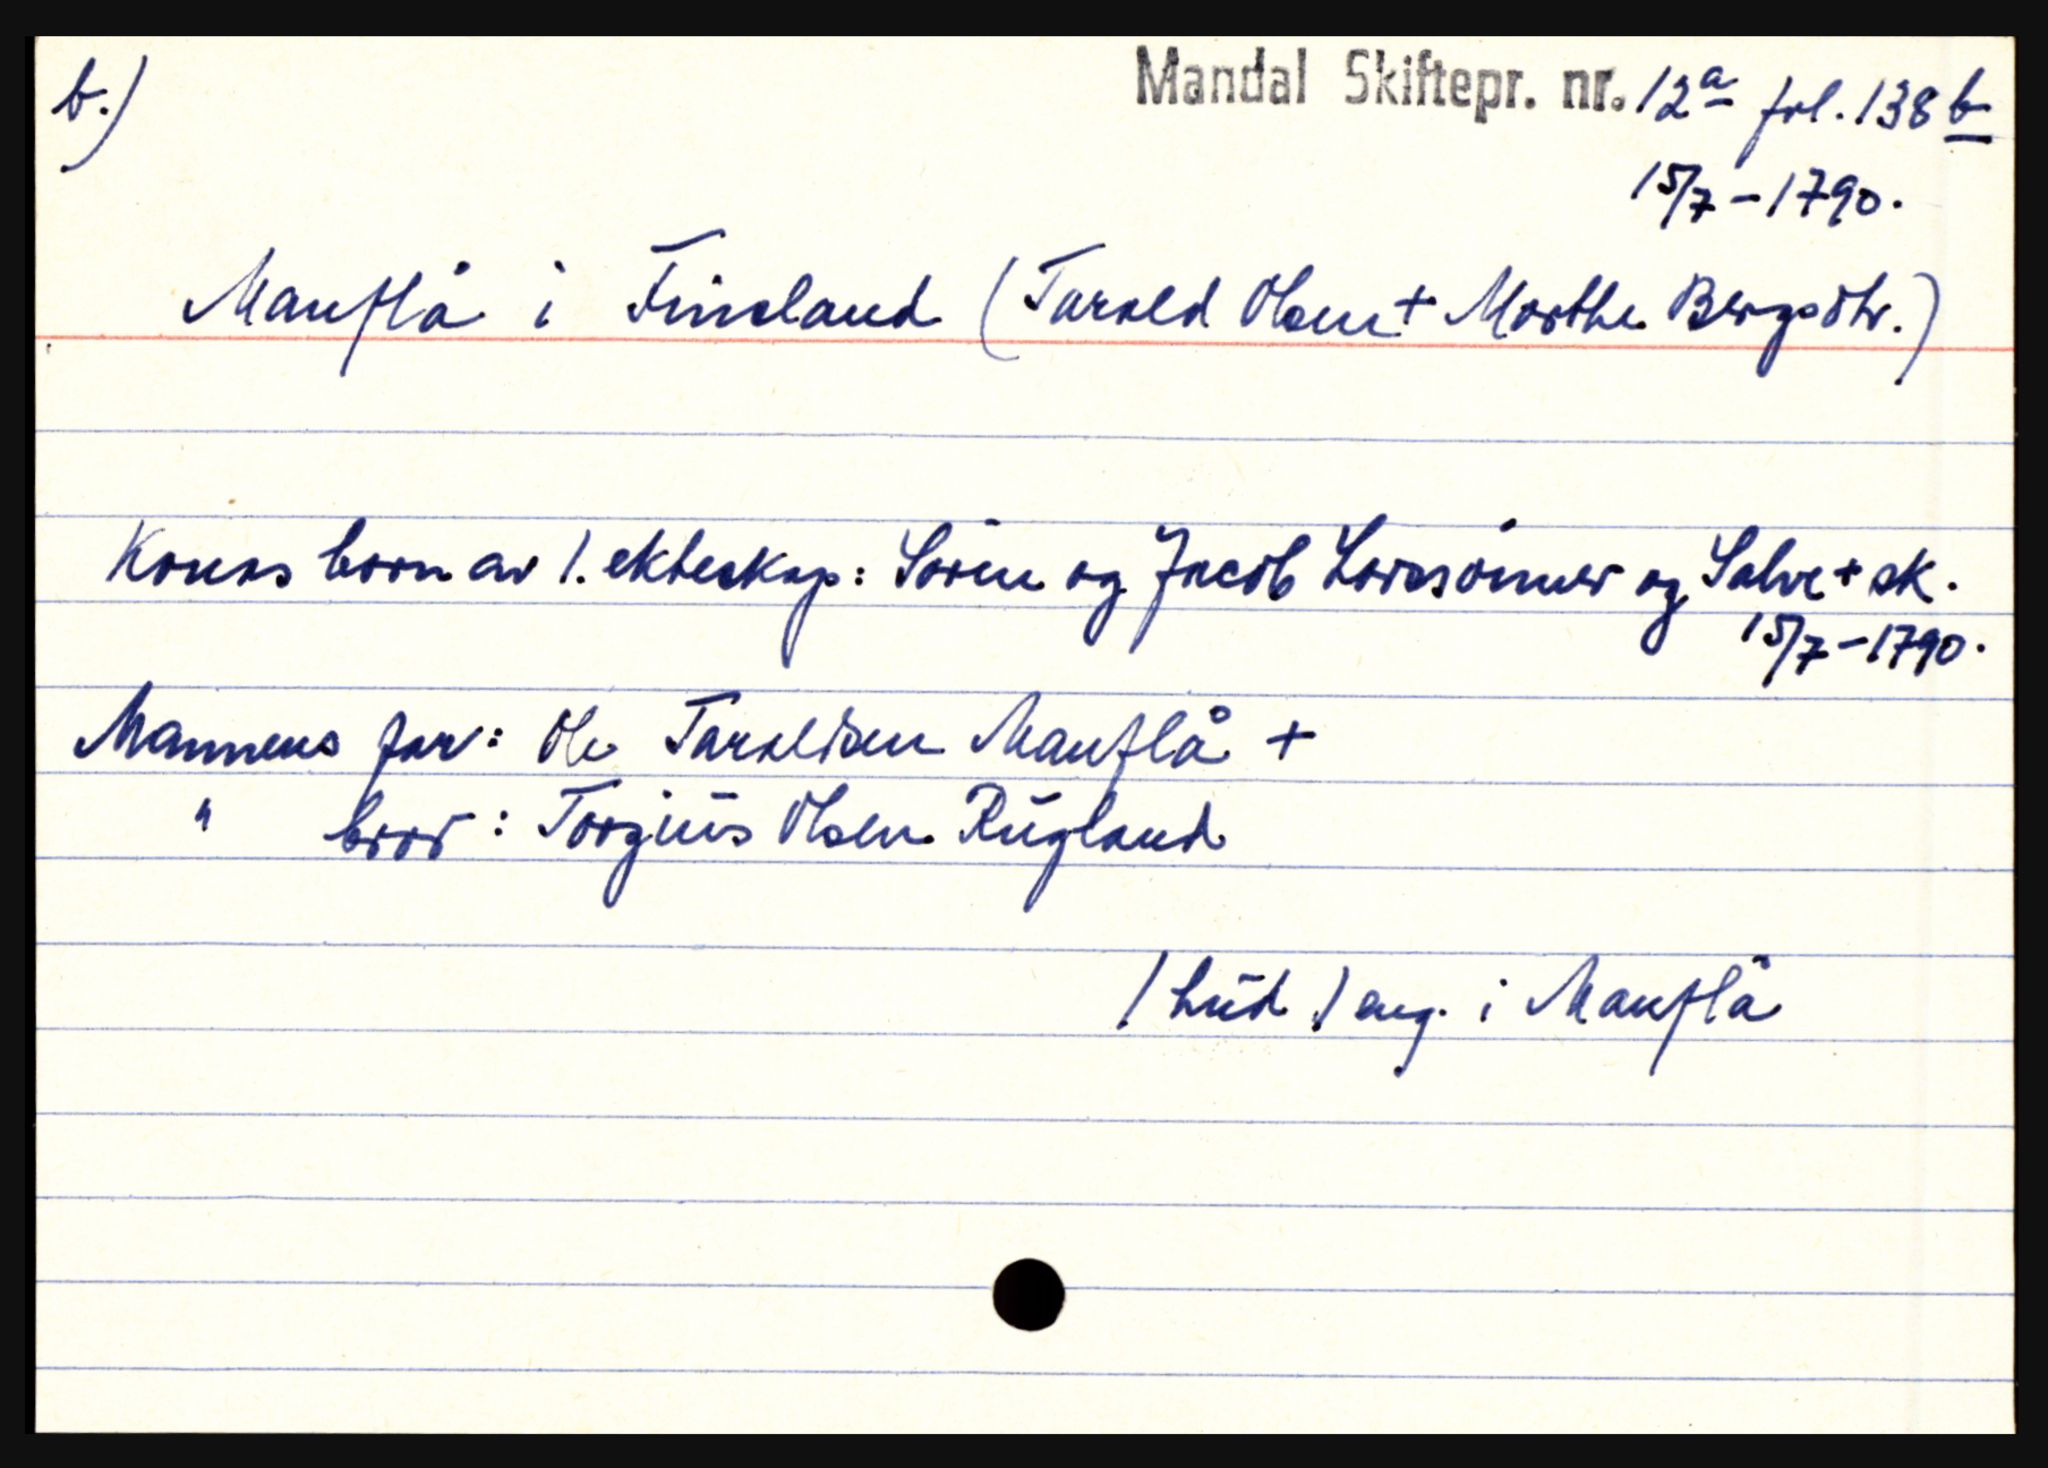 b.)
Mandal Skiftepr. nr. 12a fol. 138 b
15/7 - 1790.
Mauflå i Finsland (Tarald Olsen + Marthe Bergsdtr.)
Konas born av 1. ekteskap: Sørin og Jacob Larssønner og Salve + sk.
15/7 - 1790.
Mannens far: Ole Taraldsen Mauflå +
" bror: Torgius Olsen Rugland
1 hud 1 eng. i Mauflå